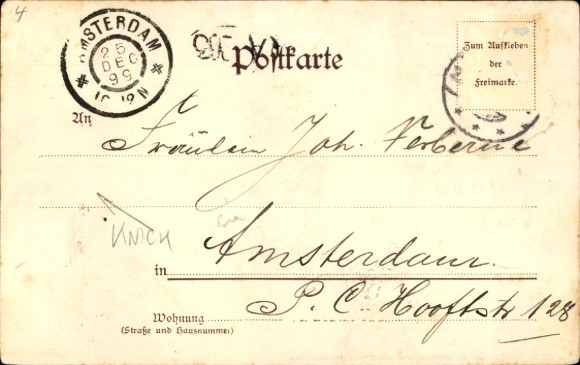 4
AMSTERDAM
25
DEC
99
10-12N
Postkarte
Zum Aufkleben
der
Freimarke.
An
Fräulein Joh. Verberne
KNICK
in Amsterdam.
P. C. Hooftstr 128
Wohnung
(Straße und Hausnummer)